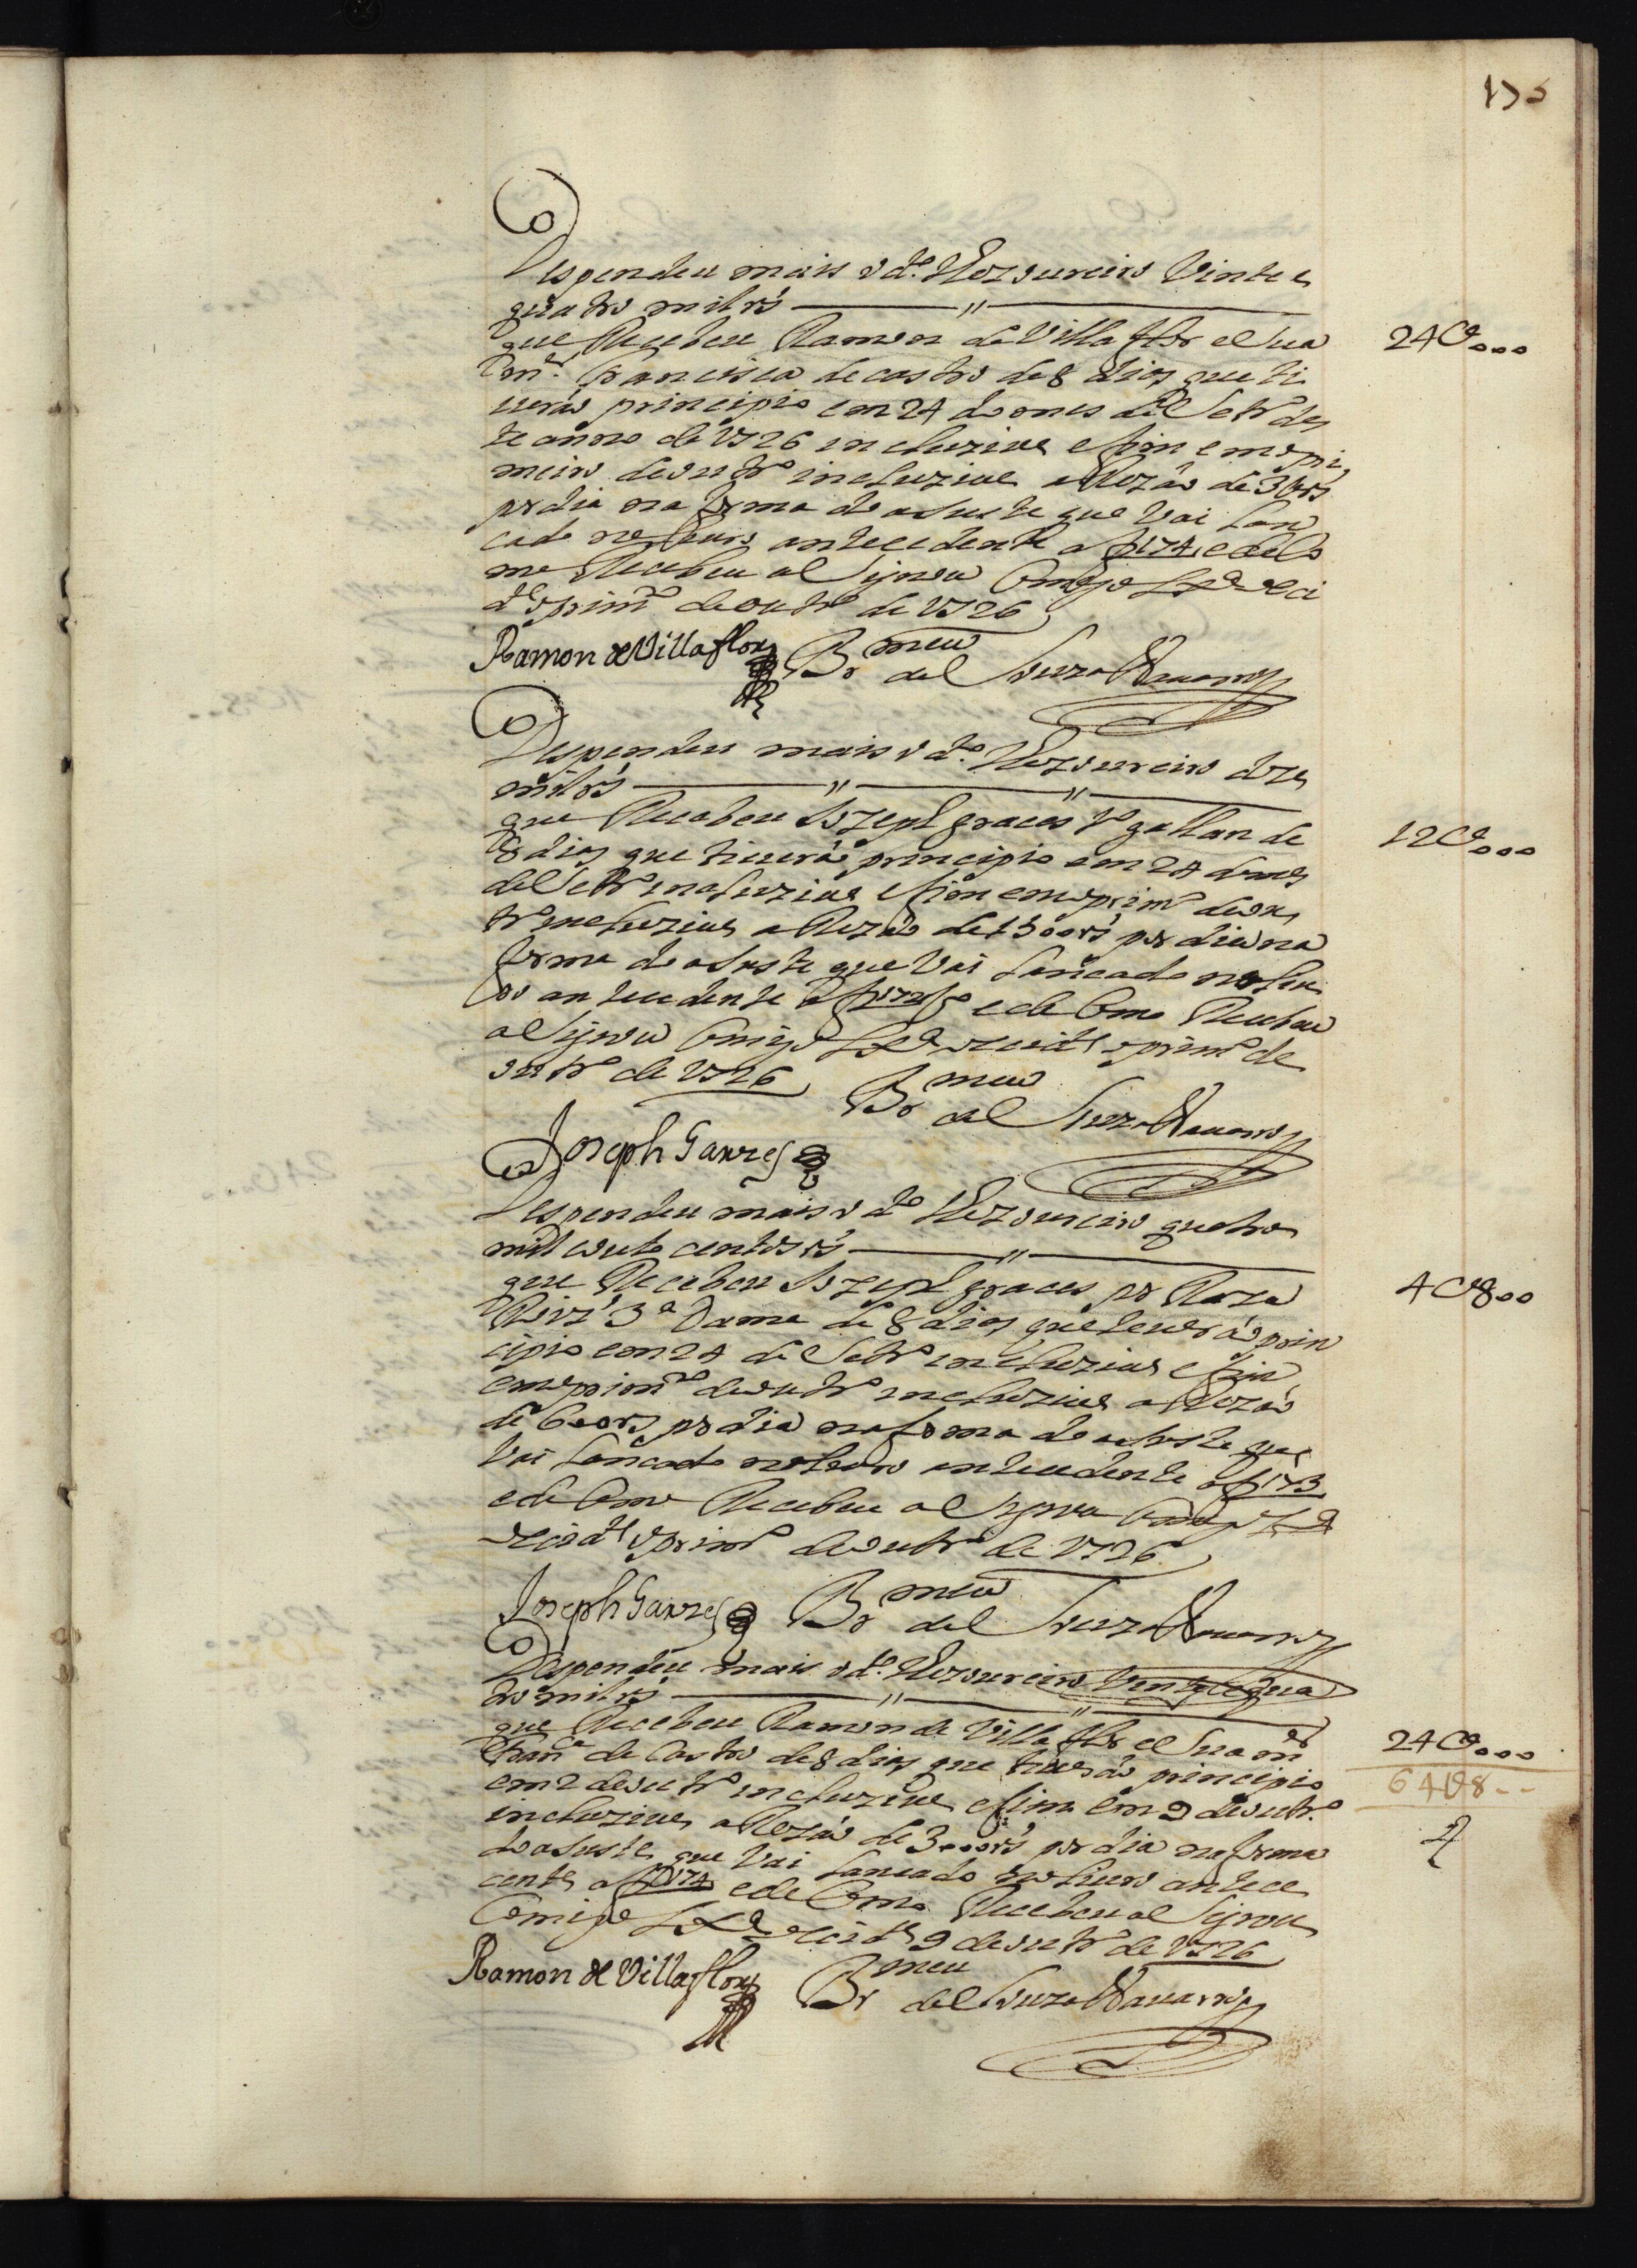 175
Despendeu mais o d.º Thezoureiro Vinte e
quatro mil rs
que Recebeu Ramon de Villa flor e Sua
m.er Francisca de castro de 8 dias que ti
verão principio em 24 do mes de Setr.º des
te anno de 1726 incluzive e fim em o pri
meiro de outr.º incluzive a Rezão de 3000rs
por dia na forma do ajuste que Vai lan
cado no livro antecedente a f 174 e de Co
mo Recebeu asignou Comigo Lx.ª
o prim.º de outr.º de 1726
24U000
Ramon de Villaflor
Br.meu de Souza Navarro
Despendeu mais o d.º Thezoureiro doze
mil rs
que Recebeu Jozeph graces 1.º gallan de
8 dias que tiverão principio em 24 do mes
de Setr.º incluzive e fim em o prim.º de ou
tr.º incluzive a Rezão de 1500rs por dia na
forma do ajuste que Vai lancado no liv
ro antecedente a f 172 e de Como Recebeu
asignou Comigo Lx.ª o prim.º de
outr.º de 1726
12U000
Br.meu de Souza Navarro
Joseph Garzes
Despendeu mais o d.º Thezoureiro quatro
mil e outo centos rs
que Recebeu Jozeph graces por Roza
Roiz 3.ª Dama de 8 dias que teverão prin
cipio em 24 de Setr.º incluzive e fim
em o prim.º de outr.º incluzive a Rezão
de 600rs por dia na forma do ajuste que
Vai lancado no livro antecedente a f 173
e de Como Recebeu asignou Comigo Lx.ª
o prim.º de outr.º de 1726
4U800
Joseph Garzes
Br.meu de Souza Navarro
Despendeu mais o d.º Thezoureiro Vinte e qua
tro mil rs
que Recebeu Ramon de Villa flor e Sua m.er
Fran.ca de Castro de 8 dias que tiverão principio
em 2 de outr.º incluzive e fim em 9 de outr.º
incluzive a Rezão de 3000rs por dia na forma
do ajuste que Vai lancado no livro antece
dente a f 174 e de Como Recebeu asignou
Comigo Lx.ª 9 de outr.º de 1726
24U000
64U8--
Ramon de Villaflor
Br.meu de Souza Navarro